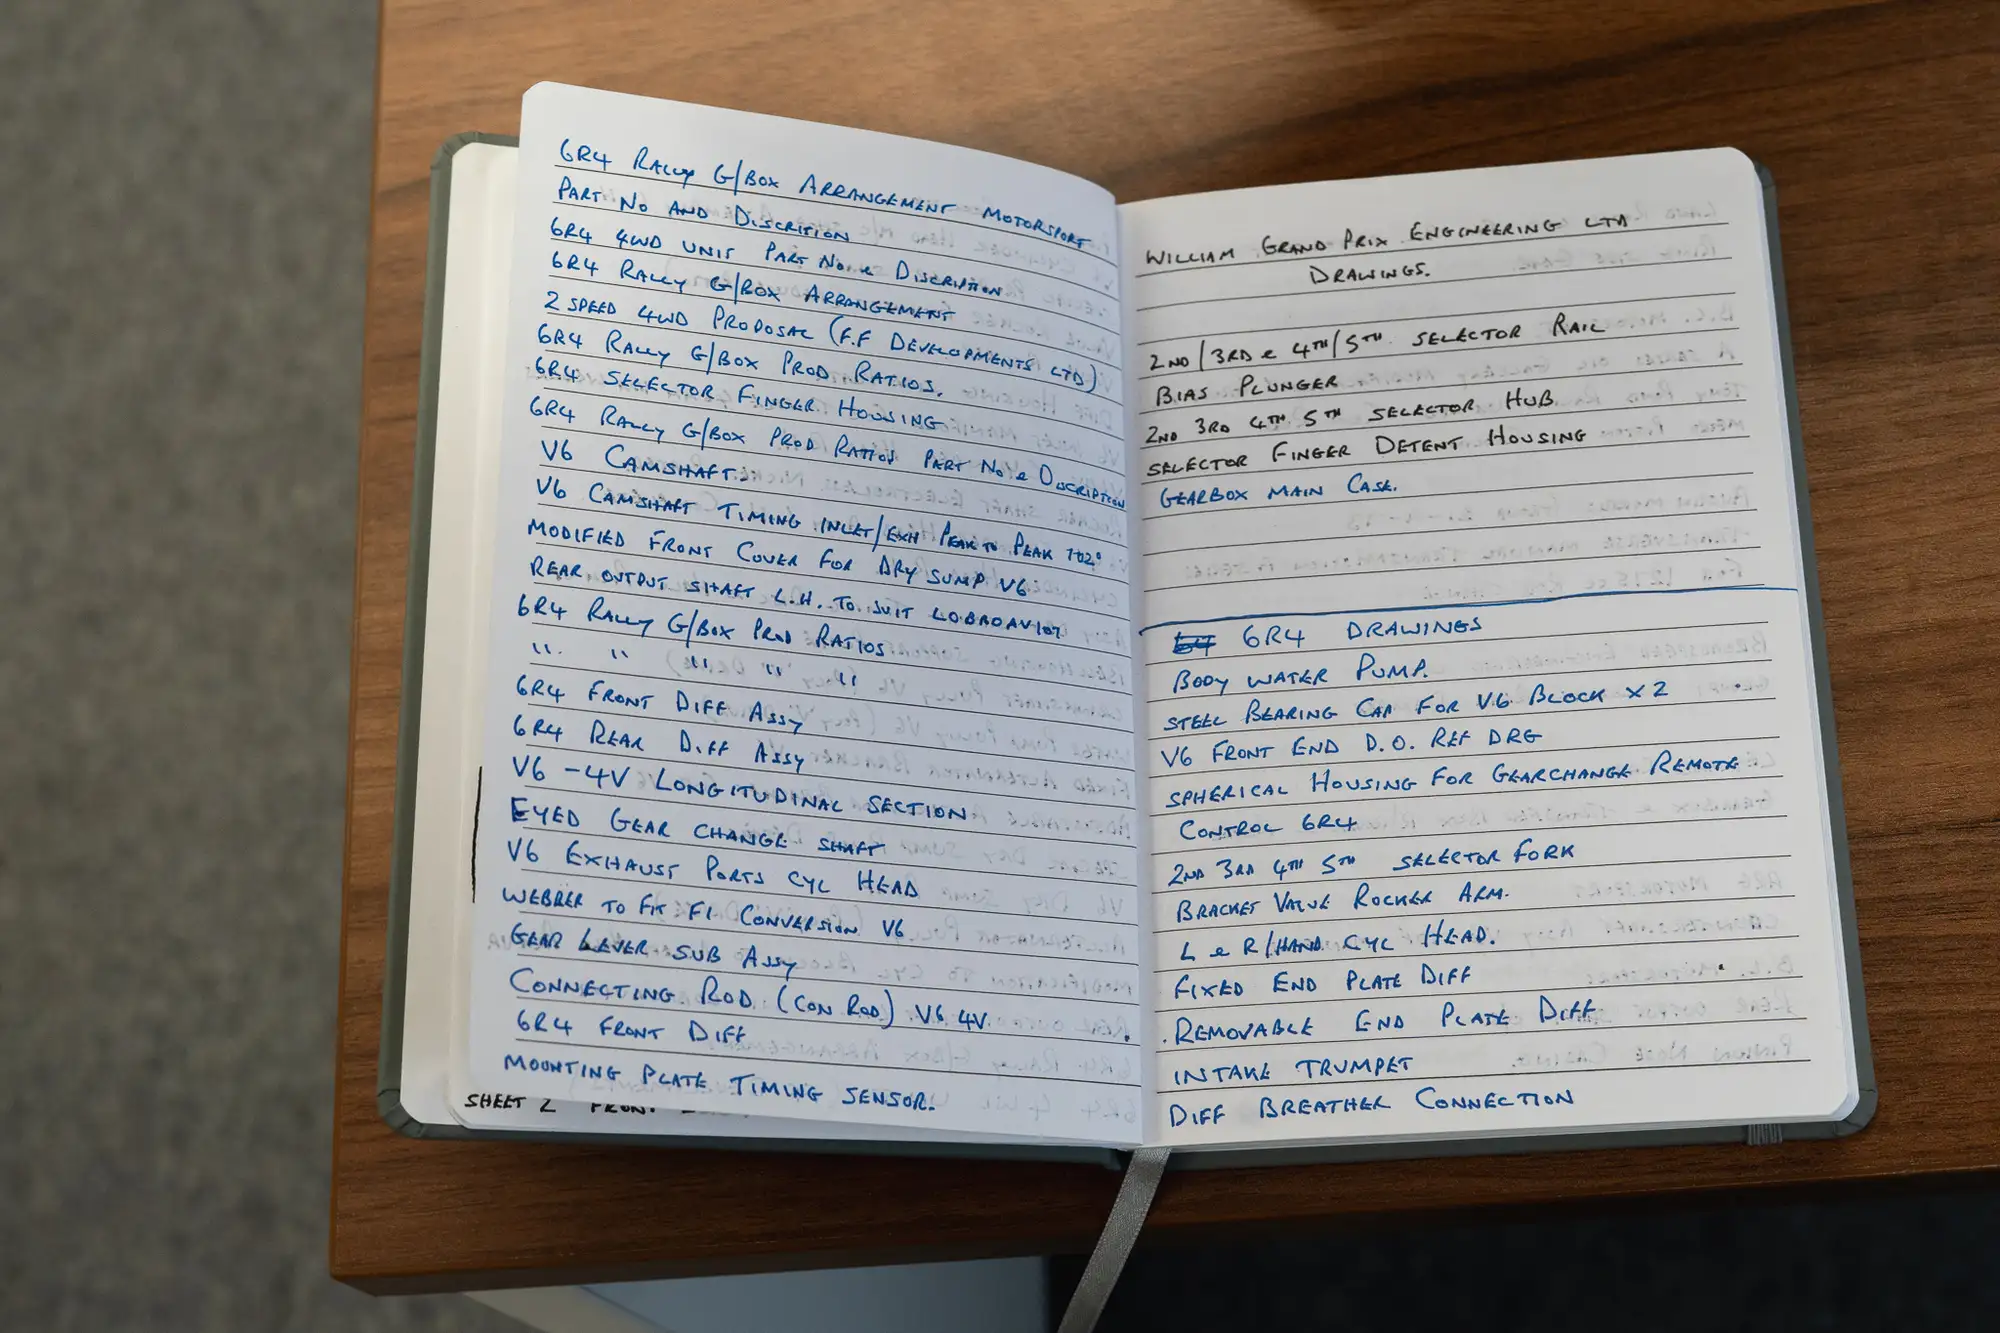 6R4 RALLY G/BOX ARRANGEMENT MOTORSPORT
PART NO AND DISCRITION
6R4 4WD UNIT PART NO & DISCRIPTION
6R4 RALLY G/BOX ARRANGEMENT
2 SPEED 4WD PROPOSAL (F.F DEVELOPMENTS LTD)
6R4 RALLY G/BOX PROD RATIOS.
6R4 SELECTOR FINGER HOUSING
6R4 RALLY G/BOX PROD RATIOS PART NO & DISCRIPTION
V6 CAMSHAFT
V6 CAMSHAFT TIMING INLET/EXH PEAK TO PEAK 102°
MODIFIED FRONT COVER FOR DRY SUMP V6
REAR OUTPUT SHAFT L.H. TO SUIT
6R4 RALLY G/BOX PROD RATIOS
" " " " "
6R4 FRONT DIFF ASSY
6R4 REAR DIFF ASSY
V6 - 4V LONGITUDINAL SECTION
EYED GEAR CHANGE SHAFT
V6 EXHAUST PORTS CYL HEAD
WEBBER TO FIT FI CONVERSION V6
GEAR LEVER SUB ASSY
CONNECTING ROD (CON ROD) V6 4V.
6R4 FRONT DIFF
MOUNTING PLATE TIMING SENSOR.
SHEET 2 FRONT
WILLIAM GRAND PRIX ENGINEERING LTD
DRAWINGS.
2ND/3RD & 4TH/5TH SELECTOR RAIL
BIAS PLUNGER
2ND 3RD 4TH 5TH SELECTOR HUB
SELECTOR FINGER DETENT HOUSING
GEARBOX MAIN CASE.
6R4 DRAWINGS
BODY WATER PUMP.
STEEL BEARING CAP FOR V6 BLOCK X 2
V6 FRONT END D.O. REF DRG
SPHERICAL HOUSING FOR GEARCHANGE REMOTE
CONTROL 6R4
2ND 3RD 4TH 5TH SELECTOR FORK
BRACKET VALVE ROCKER ARM.
L & R/HAND CYL HEAD.
FIXED END PLATE DIFF
REMOVABLE END PLATE DIFF
INTAKE TRUMPET
DIFF BREATHER CONNECTION